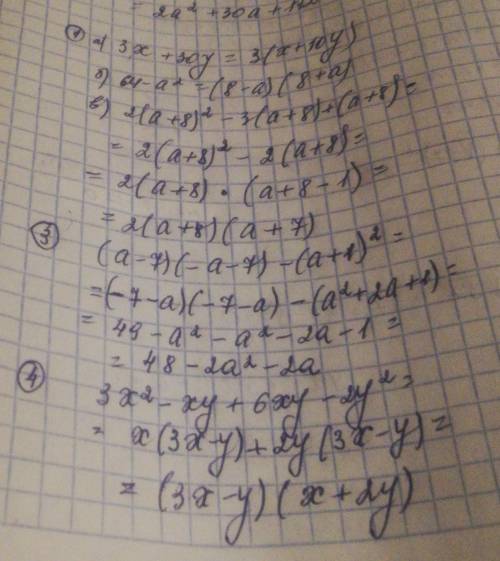 = 2a² + 30a +
① а) 3x + 30y = 3(x+10y)
б) 64 - a² = (8-a)(8+a)
в) 2(a+8)² - 3(a+8) + (a+8) =
= 2(a+8)² - 2(a+8) =
= 2(a+8) · (a+8-1) =
= 2(a+8)(a+7)
③ (a-7)(-a-7) - (a+1)² =
= (-7-a)(-7-a) - (a²+2a+1) =
= 49 - a² - a² - 2a - 1 =
= 48 - 2a² - 2a
④ 3x² - xy + 6xy - 2y² =
= x(3x-y) + 2y(3x-y) =
= (3x-y)(x+2y)